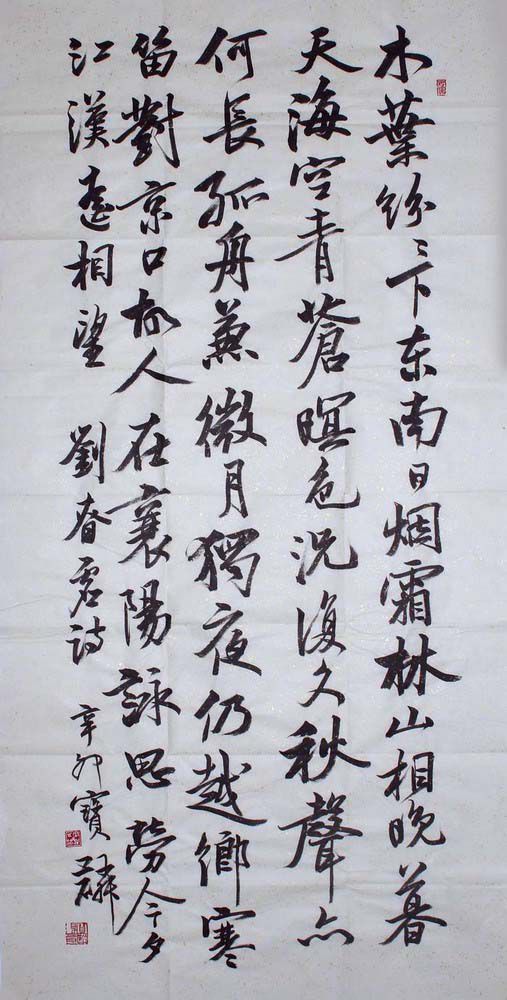 木葉紛〻下东南日烟霜林山相晚暮
天海空青蒼暝色況復久秋聲亦
何長孤舟兼微月獨夜仍越鄉寒
笛對京口故人在襄陽詠思勞今夕
江漢遙相望 劉昚虛詩 辛卯寶璘